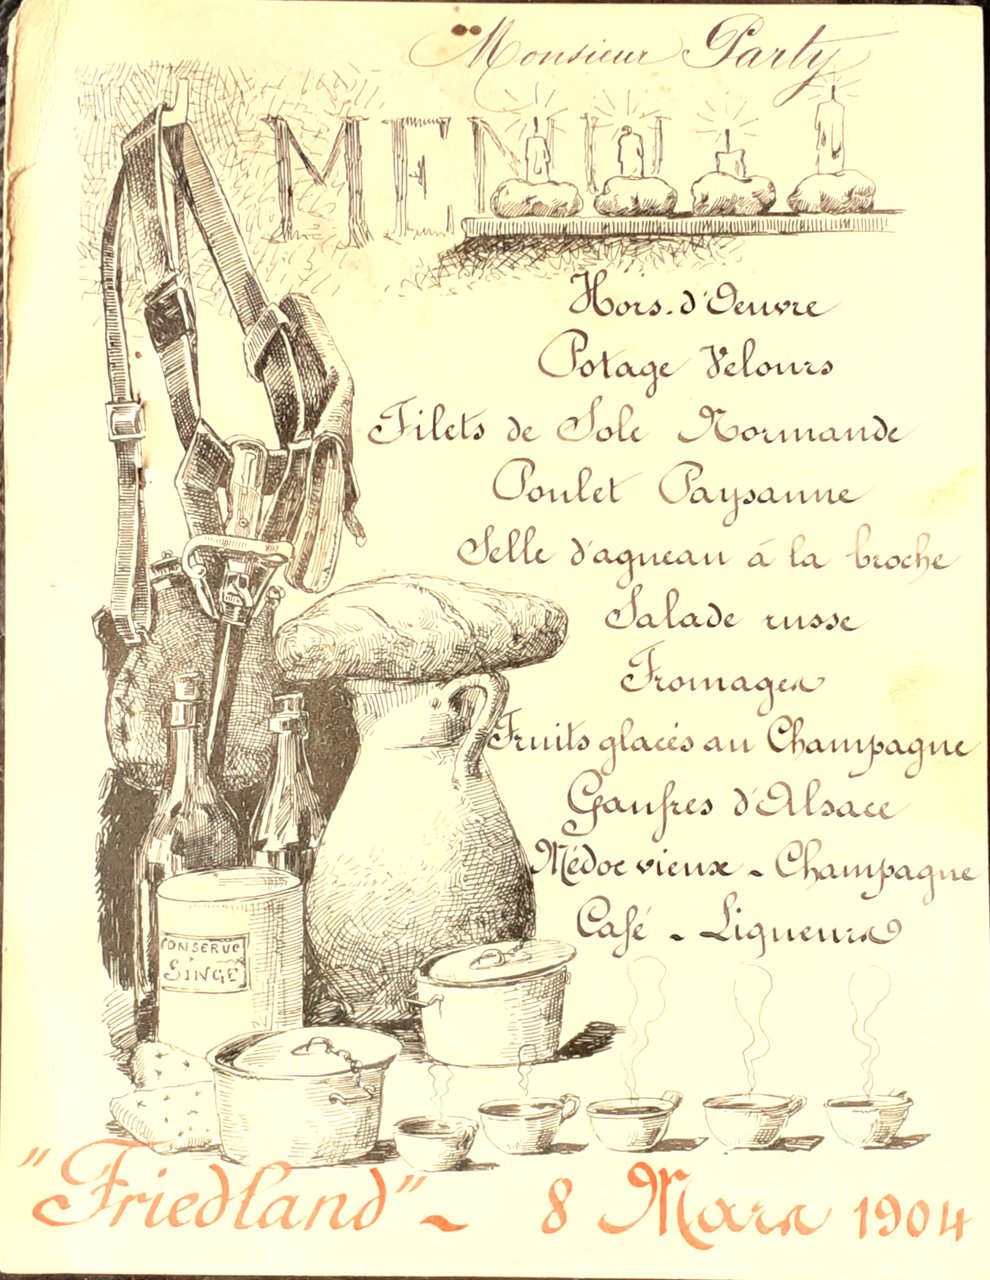 Monsieur Party
MENU
Hors-d'Oeuvre
Potage Velours
Filets de Sole Normande
Poulet Paysanne
Selle d'agneau à la broche
Salade russe
Fromages
Fruits glacés au Champagne
Gaufres d'Alsace
Médoc vieux - Champagne
Café - Liqueurs
CONSERVE
SINGE
"Friedland" - 8 Mars 1904